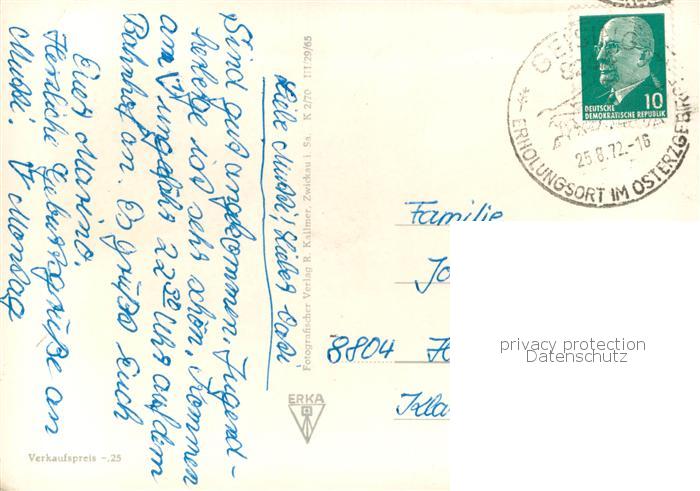 Liebe Mutti! Lieber Vati
Sind gut angekommen. Jugend-
herberge ist sehr schön. Kommen
am ungefähr 22 30 Uhr auf dem
Bahnhof an. Es grüßt Euch
Euer
Herzliche Geburtstagsgrüße an
Mutti. Montag
Fotografischer Verlag R. Kallmer, Zwickau i. Sa. K 2/70 III/29/65
ERKA
Verkaufspreis -.25
DEUTSCHE
DEMOKRATISCHE REPUBLIK
10
ERHOLUNGSORT IM OSTERZGEBIRGE
25.8.72.-16
Familie
8804
privacy protection
Datenschutz